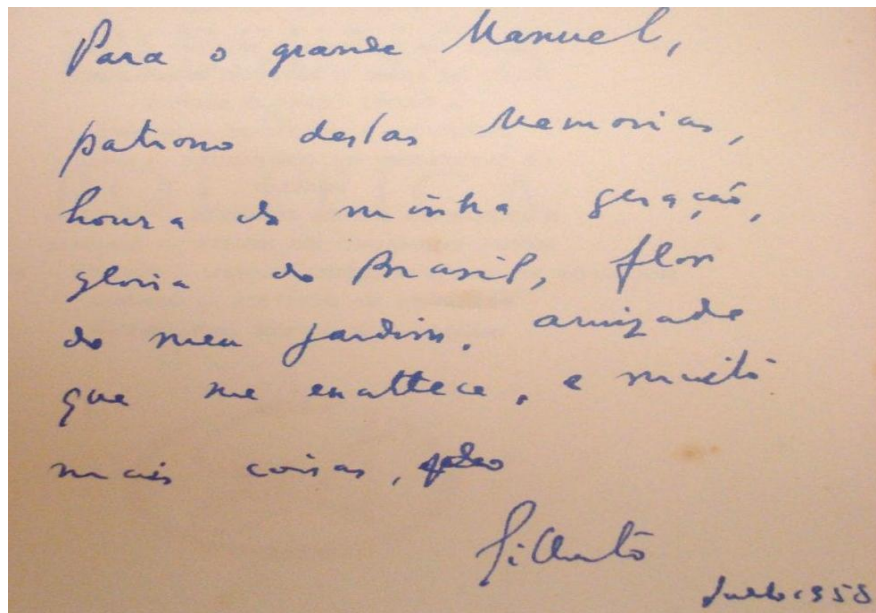 Para o grande Manuel,
patrono destas Memorias,
honra da minha geração,
gloria do Brasil, flor
do meu jardim, amizade
que me enaltece, e muitas
mais coisas,
Gilberto
1958